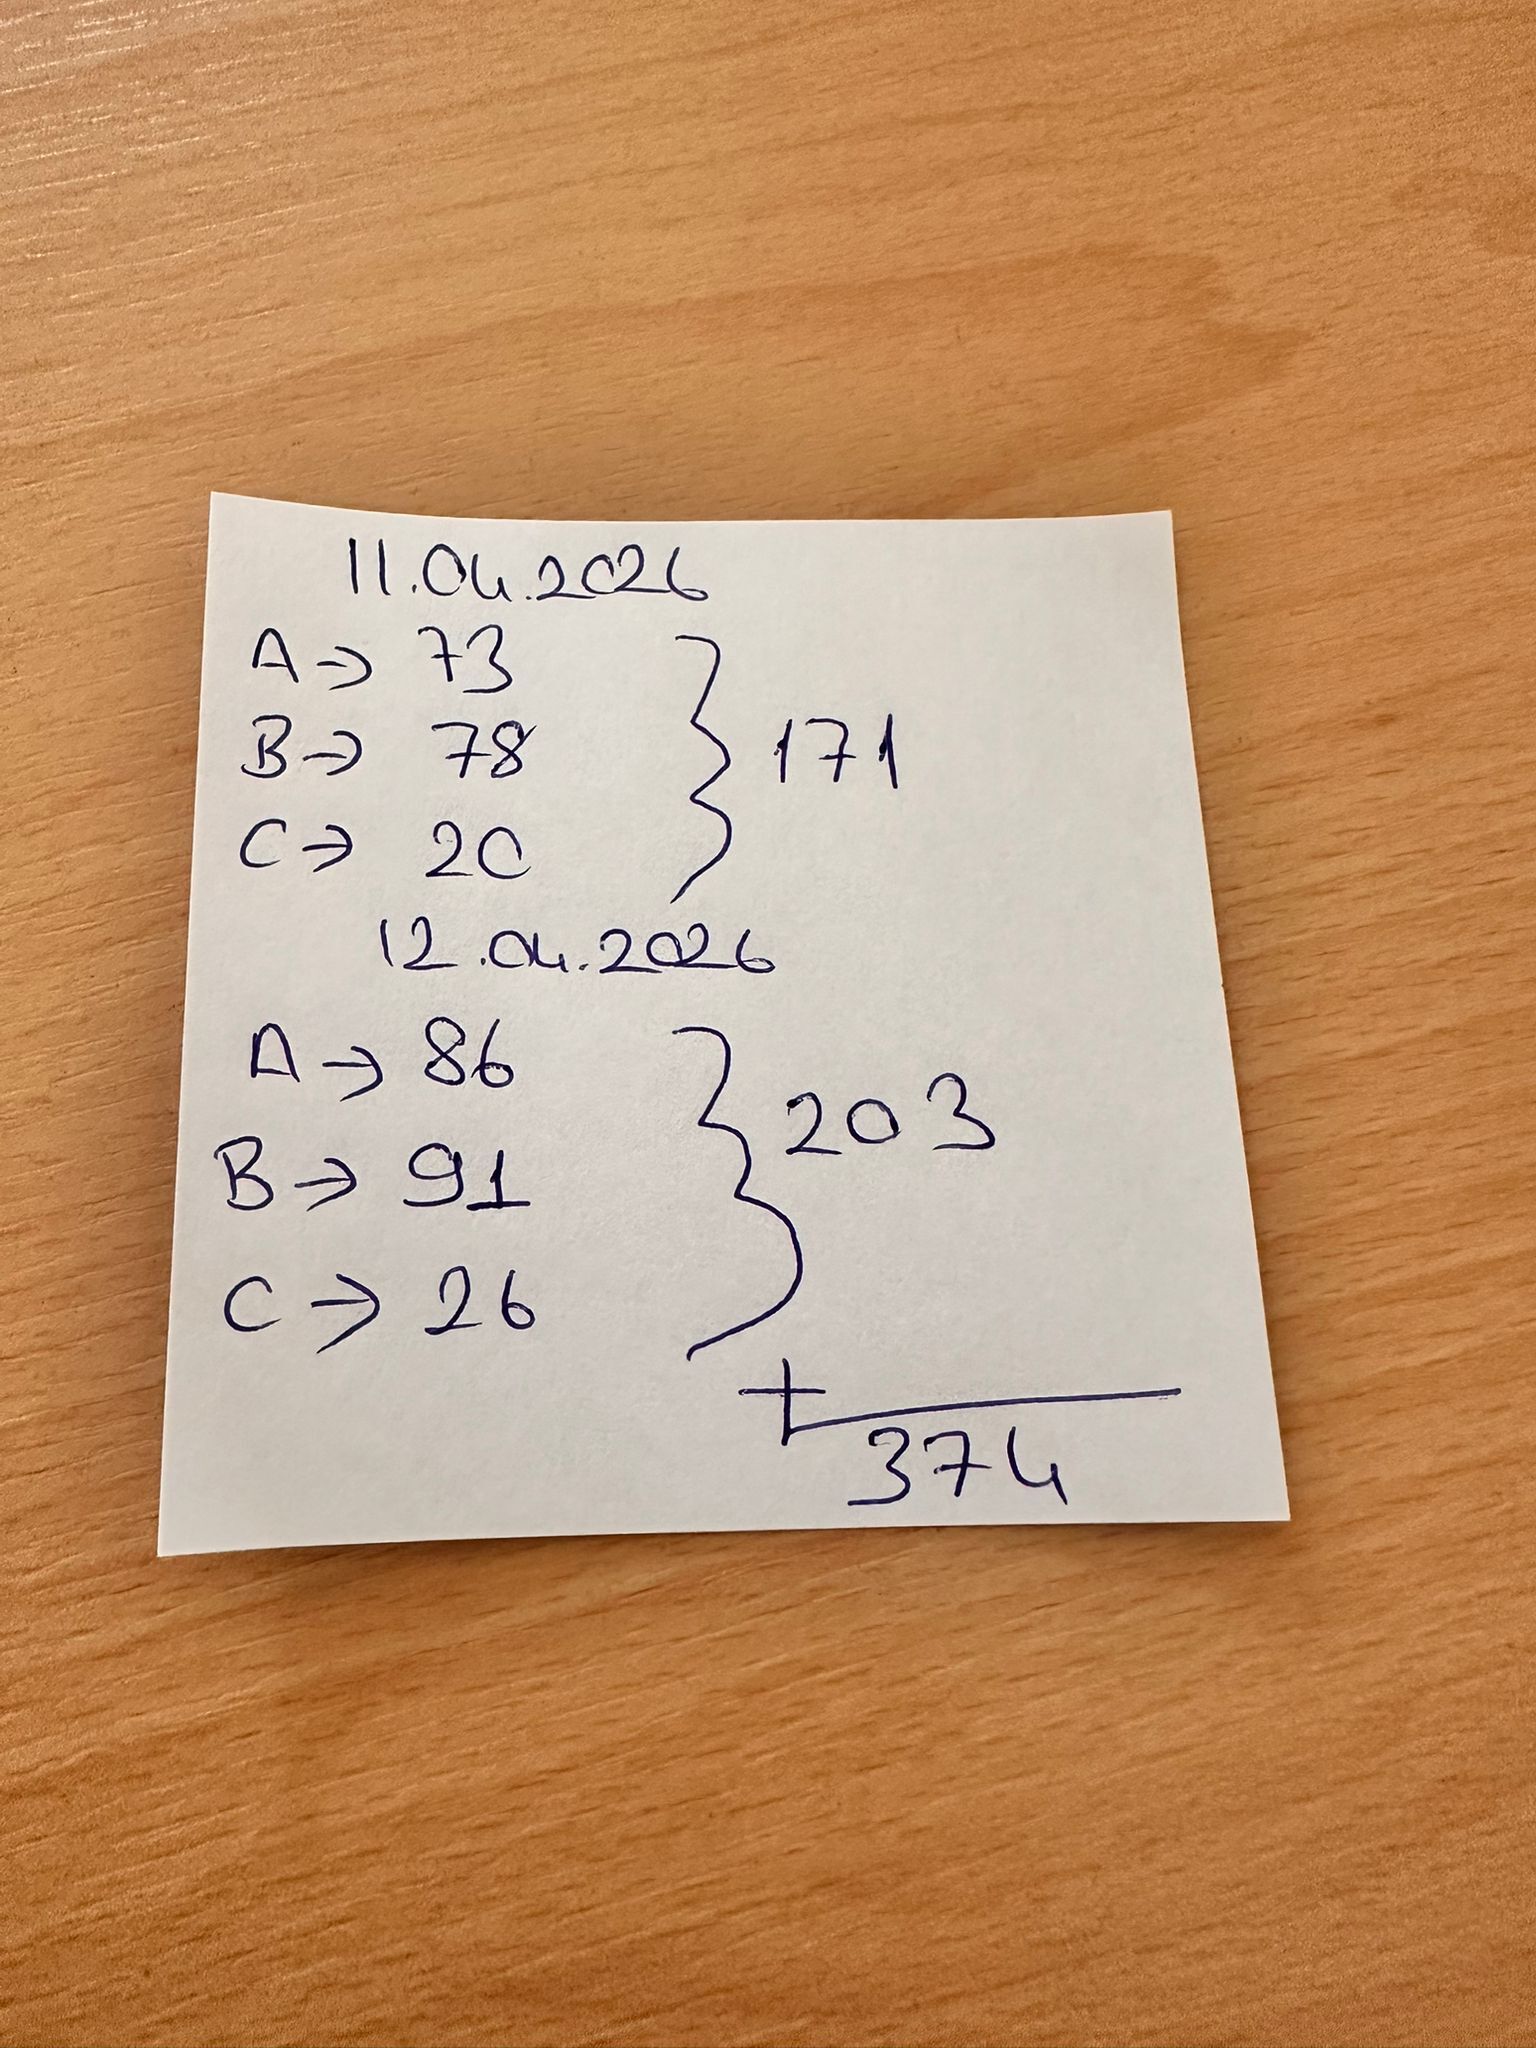 11.04.2026
A → 73
B → 78
C → 20
} 171
12.04.2026
A → 86
B → 91
C → 26
} 203
+
374